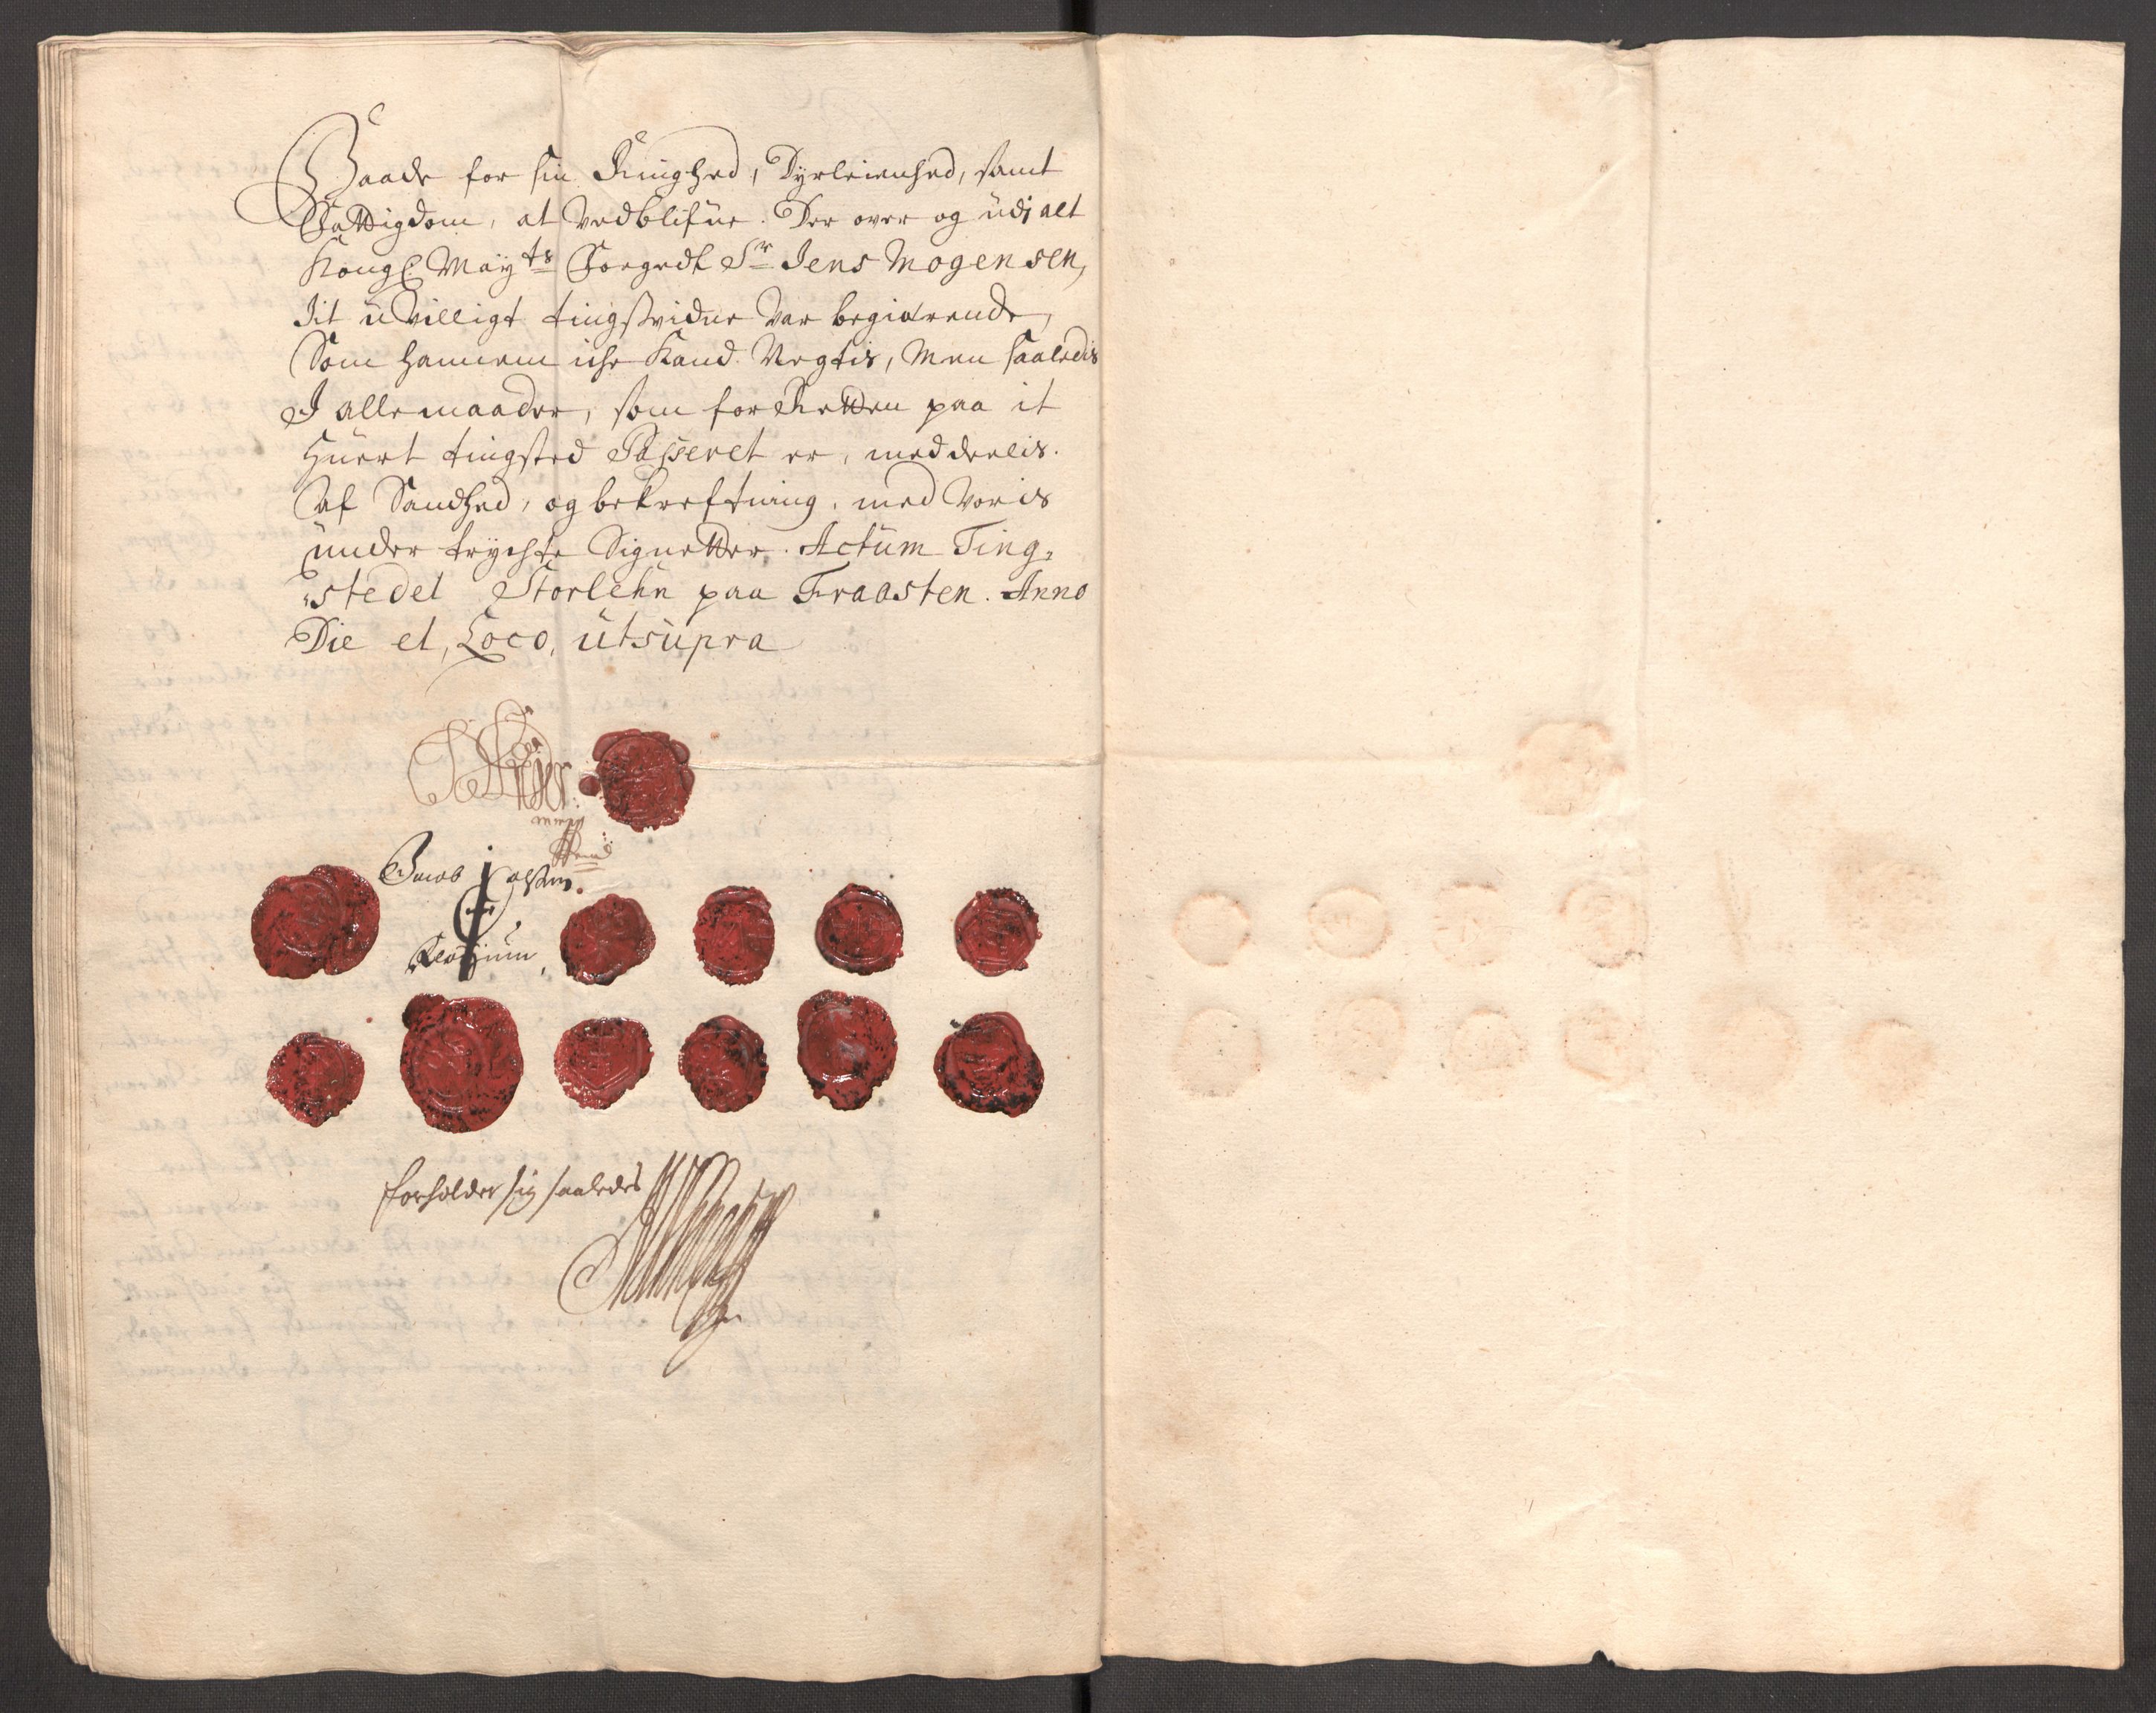 Baade for sin Ringhed, Dyrleienhed, samt
Fattigdom, at Vedblifue. Der over og udj alt
Kongl. Mayts Foegedt Sr Jens Mogensen,
Jit uVilligt tingsvidne var begiærende,
Som hannem iche Kand Negtis, Men saaledis
J alle maader, som for Retten paa it
Huert tingsted Passeret er, meddeelis.
Af Sandhed, og bekreftning, med Voris
under trychte Signetter. Actum Ting-
stedet Storlehn paa Fraasten. Anno
Die et, Loco, utsupra
mpp
Jacob
forholder sig saaledes